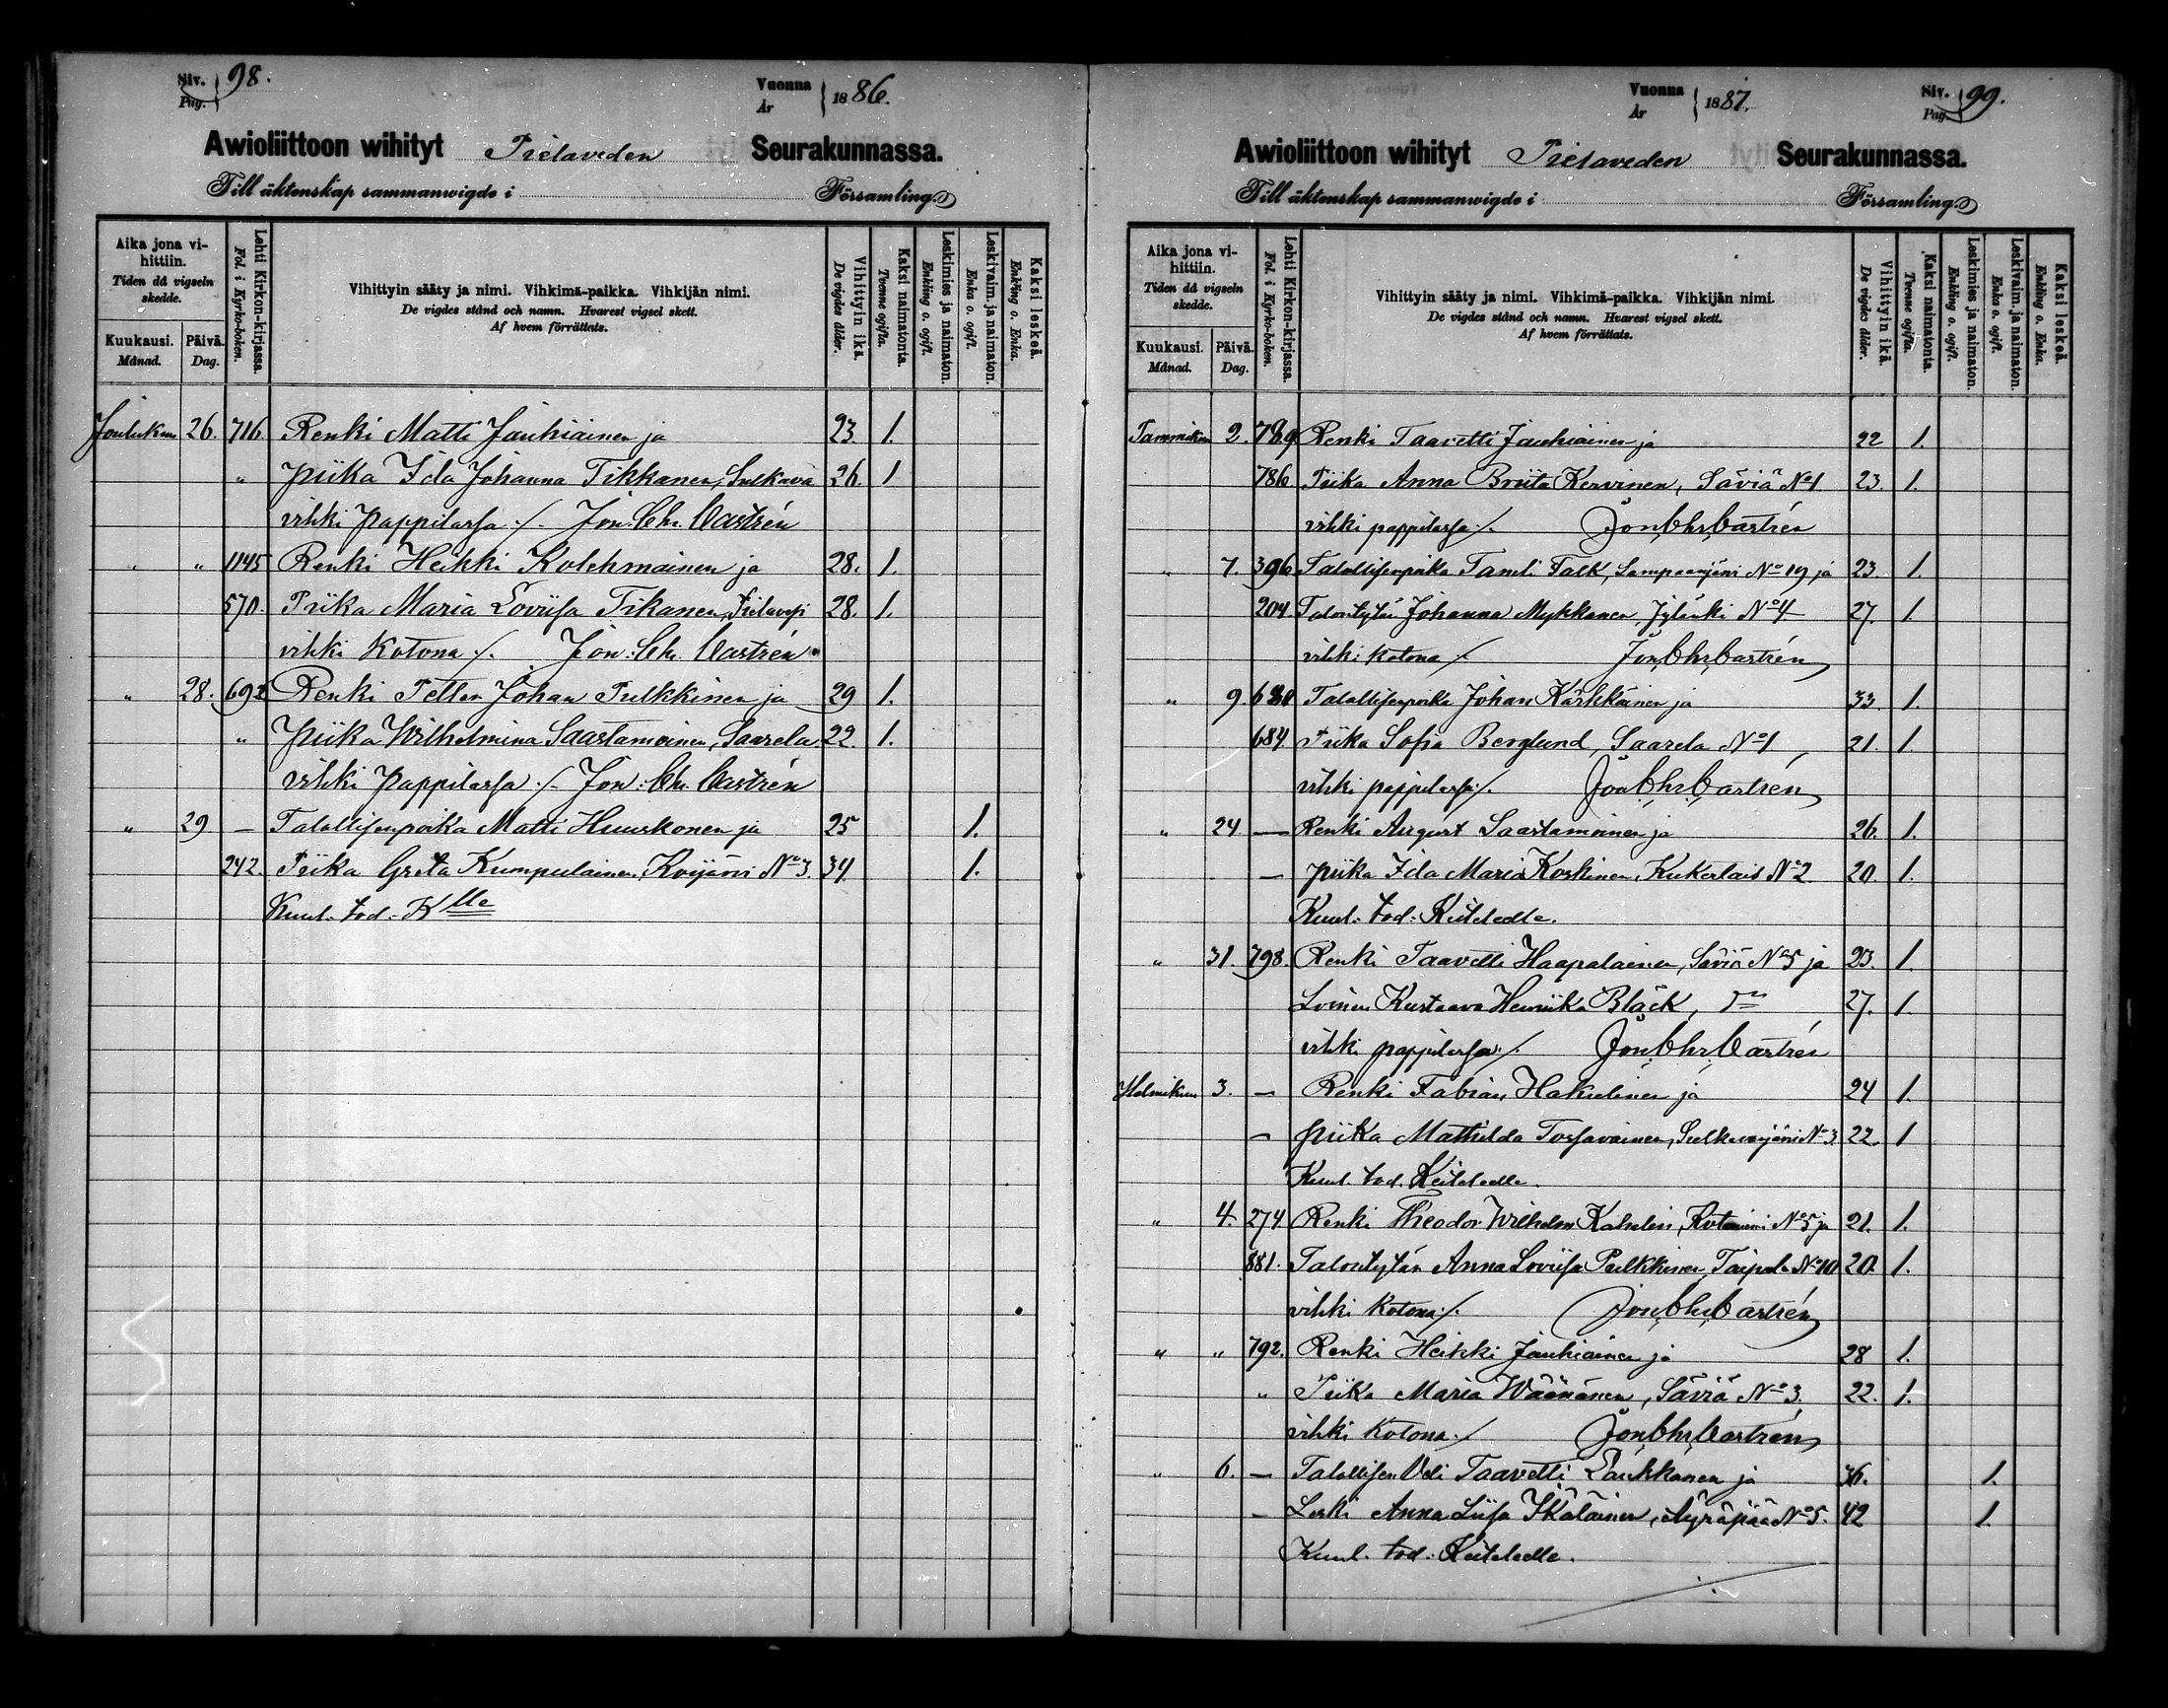 Siv. Pag. } 98.
Vuonna År } 1886.
Awioliittoon wihityt Pielaveden Seurakunnassa.
Till äktenskap sammanwigde i Församling.
Aika jona vihittiin. Tiden då vigseln skedde.
Kuukausi. Månad.
Päivä. Dag.
Lehti Kirkon-kirjassa. Fol. i Kyrko-boken.
Vihittyin sääty ja nimi. Vihkimä-paikka. Vihkijän nimi.
De vigdes stånd och namn. Hvarest vigsel skett.
Af hvem förrättats.
Vihittyin ikä. De vigdes ålder.
Kaksi naimatonta. Tvenne ogifta.
Leskimies ja naimaton. Enkling o. ogift.
Leskivaim. ja naimaton. Enka o. ogift.
Kaksi leskeä. Enkling o. Enka.
Joulukuu 26. 716. Renki Matti Jauhiainen ja 23. 1.
" Piika Ida Johanna Tikkanen, Sulkava 26. 1
vihki Pappilassa ./. Jon. Chr. Castrén
" " 1145 Renki Heikki Kolehmainen ja 28. 1.
570. Piika Maria Loviisa Tikanen, Pielavesi 28. 1.
vihki Kotona ./. Jon. Chr. Castrén
" 28. 692 Renki Petter Johan Pulkkinen ja 29 1.
" Piika Wilhelmina Saastamoinen, Saarela 22. 1.
vihki Pappilassa ./. Jon. Chr. Castrén
" 29 — Talollisenpoika Matti Huuskonen ja 25 1.
242. Piika Greta Kumpulainen, Koijärvi No 3. 34 1.
Kuul. tod. K lle
Vuonna År } 1887.
Siv. Pag. } 99.
Awioliittoon wihityt Pielaveden Seurakunnassa.
Till äktenskap sammanwigde i Församling.
Aika jona vihittiin. Tiden då vigseln skedde.
Kuukausi. Månad.
Päivä. Dag.
Lehti Kirkon-kirjassa. Fol. i Kyrko-boken.
Vihittyin sääty ja nimi. Vihkimä-paikka. Vihkijän nimi.
De vigdes stånd och namn. Hvarest vigsel skett.
Af hvem förrättats.
Vihittyin ikä. De vigdes ålder.
Kaksi naimatonta. Tvenne ogifta.
Leskimies ja naimaton. Enkling o. ogift.
Leskivaim. ja naimaton. Enka o. ogift.
Kaksi leskeä. Enkling o. Enka.
Tammikuu 2. 789 Renki Taavetti Jauhiainen ja 22 1.
786 Piika Anna Briita Kervinen, Säviä No 1 23. 1.
vihki pappilassa ./. Jon. Chr. Castrén
" 7. 396 Talollisenpoika Taneli Falk, Lampaanjärvi No 19 ja 23. 1.
204 Talontytär Johanna Mykkänen, Jylänki No 4. 27. 1.
vihki Kotona ./. Jon. Chr. Castrén
" 9. Talollisenpoika Johan Kärkkäinen ja 33. 1.
684. Piika Sofia Berglund, Saarela No 1 21. 1.
vihki pappilassa ./. Jon. Chr. Castrén
" 24 — Renki August Saastamoinen ja 26. 1.
— Piika Ida Maria Koskinen, No 2 20. 1.
Kuul. tod. Keiteleelle.
" 31. 798. Renki Taavetti Haapalainen, Säviä No 5 ja 23. 1.
Loinen Kustaava Henriika Bläck, 27. 1.
vihki pappilassa ./. Jon. Chr. Castrén
Helmikuu 3. — Renki Fabian Hakulinen ja 24 1.
— Piika Mathilda Tossavainen, Sulkavanjärvi No 3. 22. 1
Kuul. tod. Keiteleelle.
" 4. 274. Renki Theodor Wilhelm Kahelin, No 5 ja 21. 1.
881. Talontytär Anna Loviisa Pulkkinen, Taipale No 10 20. 1.
vihki Kotona ./. Jon. Chr. Castrén
" " 792. Renki Heikki Jauhiainen ja 28 1.
" Piika Maria Wäänänen, Säviä No 3. 22. 1.
vihki Kotona ./. Jon. Chr. Castrén
" 6. — Talollisen Veli Taavetti Laukkanen ja 36. 1.
— Leski Anna Liisa Ikäläinen, Äyräpää No 5. 42 1.
Kuul. tod. Keiteleelle.